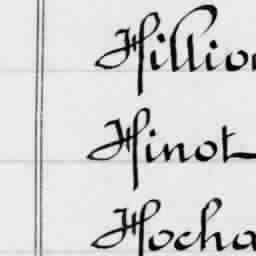 Hillion
Hinot
Hocha